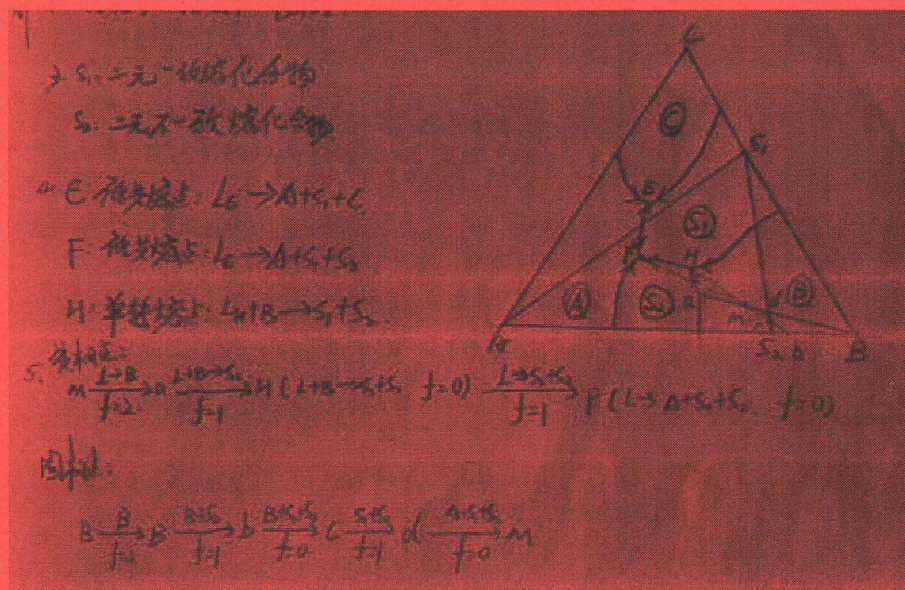 3. S₁: 二元一致熔化合物
S₂: 二元不一致熔化合物
4. E: 低共熔点: L_E → A+S₁+C
F: 低共熔点: L_E → A+S₁+S₂
H: 单转熔点: L_H+B → S₁+S₂
5. 液相点:
M —(L→B, f=2)→ a —(L+B→S₂, f=1)→ H (L+B→S₁+S₂ f=0) —(L→S₁+S₂, f=1)→ F (L→A+S₁+S₂ f=0)
固相点:
B —(B)→ B —(B+S₂, f=1)→ b —(B+S₁+S₂, f=0)→ c —(S₁+S₂, f=1)→ d —(A+S₁+S₂, f=0)→ M
C
C
S₁
E
S₁
F
H
A
S₂
a
B
M
A
S₂
b
B